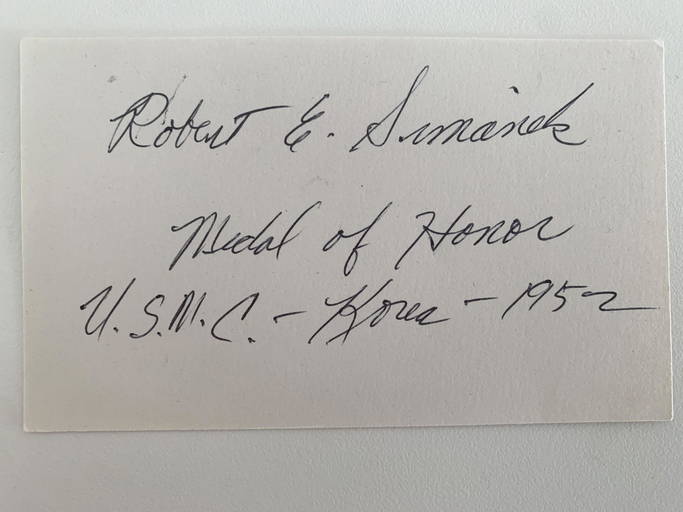 Robert E. Simanek
Medal of Honor
U.S.M.C. - Korea - 1952